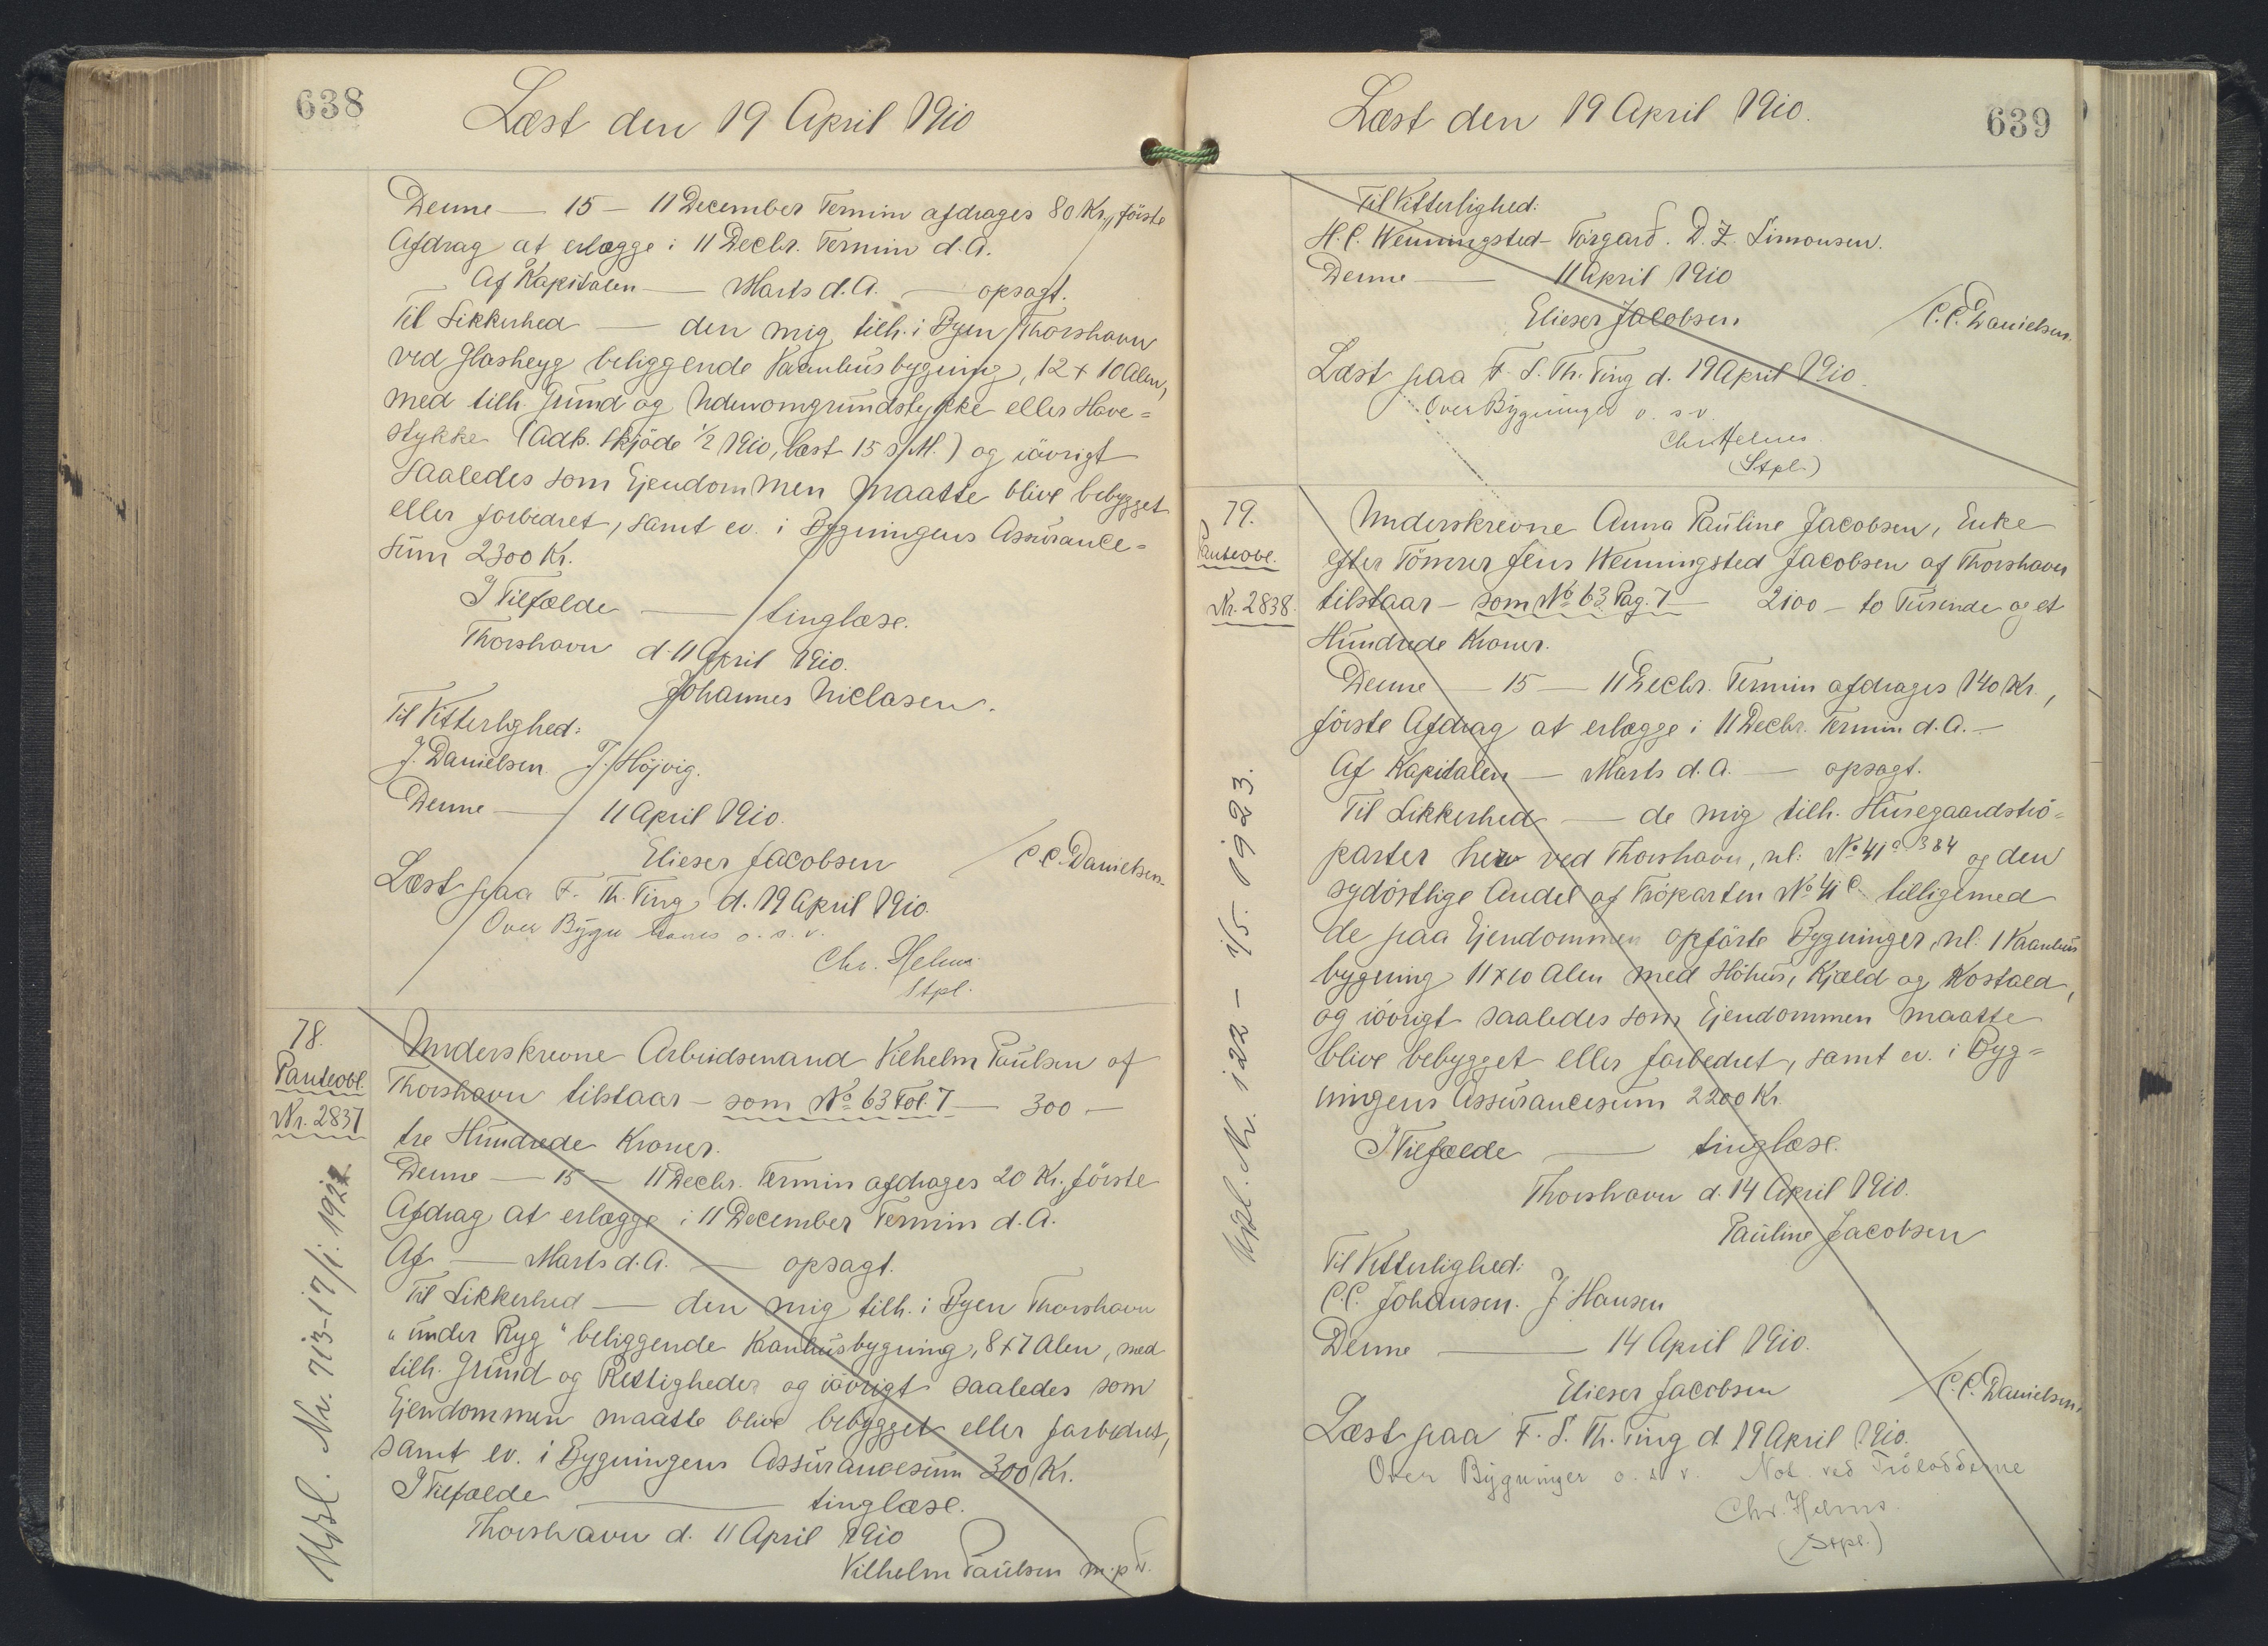 638
Læst den 19 April 1910
Denne — 15 — 11 December Termin afdrages 80 Kr., første
Afdrag at erlægge i 11 Decbr. Termin d.A.
Af Kapitalen — Marts d.A. — opsagt.
Til Sikkerhed — den mig tilh. i Byen Thorshavn
ved Glasheyg beliggende Vaanhusbygning, 12 x 10 Alen,
med tilh. Grund og Udenomgrundstykke eller Have=
stykke (Adk. Skjøde 1/2 1910, læst 15 s/M.) og iøvrigt
saaledes som Ejendommen maatte blive bebygget
eller forbedret, samt ev. i Bygningens Assurance=
sum 2300 Kr.
I Tilfælde — tinglæse.
Thorshavn d. 11 April 1910.
Johannes Niclasen.
Til Vitterlighed:
J. Danielsen. J. Højvig.
Denne — 11 April 1910.
Elieser Jacobsen / C.C. Danielsen.
Læst paa F. Th. Ting d. 19 April 1910.
Over Bygn o. s. v.
Chr. Helms
Stpl.
78.
Panteobl.
Nr. 2837
Underskrevne Arbeidsmand Vilhelm Paulsen af
Thorshavn tilstaar — som No 63 Fol. 7 — 300 —
tre Hundrede Kroner.
Denne — 15 — 11 Decbr. Termin afdrages 20 Kr., første
Afdrag at erlægge i 11 December Termin d.A.
Af — Marts d.A. — opsagt.
Til Sikkerhed — den mig tilh. i Byen Thorshavn
"under Ryg" beliggende Vaanhusbygning, 8 x 7 Alen, med
tilh. Grund og Rettigheder og iøvrigt saaledes som
Ejendommen maatte blive bebygget eller forbedret,
samt ev. i Bygningens Assurancesum 300 Kr.
I Tilfælde — tinglæse.
Thorshavn d. 11 April 1910
Vilhelm Paulsen m.p.
Nr. 713-17/1.
639
Læst den 19 April 1910.
Til Vitterlighed:
H.C. Wenningsted-Torgard. D.Z. Simonsen.
Denne — 11 April 1910
Elieser Jacobsen / C.C. Danielsen.
Læst paa F. S. Th. Ting d. 19 April 1910.
Over Bygninger o. s. v.
Chr. Helms
(Stpl.)
79.
Panteobl.
Nr. 2838.
Underskrevne Anna Pauline Jacobsen, Enke
efter Tømrer Jens Wenningsted Jacobsen af Thorshavn
tilstaar — som No 63 Pag. 7 — 2100 — to Tusinde og et
Hundrede Kroner.
Denne — 15 — 11 Decbr. Termin afdrages 140 Kr.,
første Afdrag at erlægge i 11 Decbr. Termin d.A. —
Af Kapitalen — Marts d.A. — opsagt.
Til Sikkerhed — de mig tilh. Husegaardstrø=
parter her ved Thorshavn, nl: No 41 a og den
sydøstlige Andel af Trøparten No 41 c tilligemed
de paa Ejendommen opførte Bygninger, nl. 1 Vaanhus
bygning 11 x 10 Alen med Høhus, Kjæld og Kostald,
og iøvrigt saaledes som Ejendommen maatte
blive bebygget eller forbedret, samt ev. i Byg=
ningens Assurancesum 2200 Kr.
I Tilfælde — tinglæse.
Thorshavn d. 14 April 1910.
Pauline Jacobsen
Til Vitterlighed:
C.C. Johansen. J Hansen
Denne — 14 April 1910.
Elieser Jacobsen / C.C. Danielsen.
Læst paa F. S. Th. Ting d. 19 April 1910.
Over Bygninger o. s. v. Not. ved Trølodderne
Chr. Helms.
(Stpl.)
Nr. 122 - 1/5. 1923.